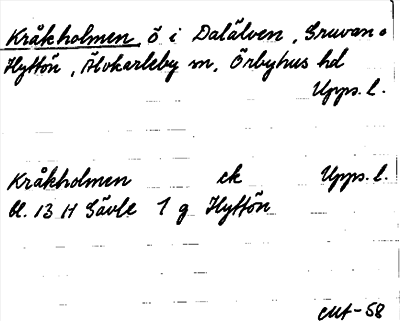 Kråkholmen ö i Dalälven, Gruvan o
Hyttön, Älvkarleby m, Örbyhus hd
Upps. l.
Kråkholmen ek Upps. l.
bl. 13 H Gävle 1 g Hyttön
-58